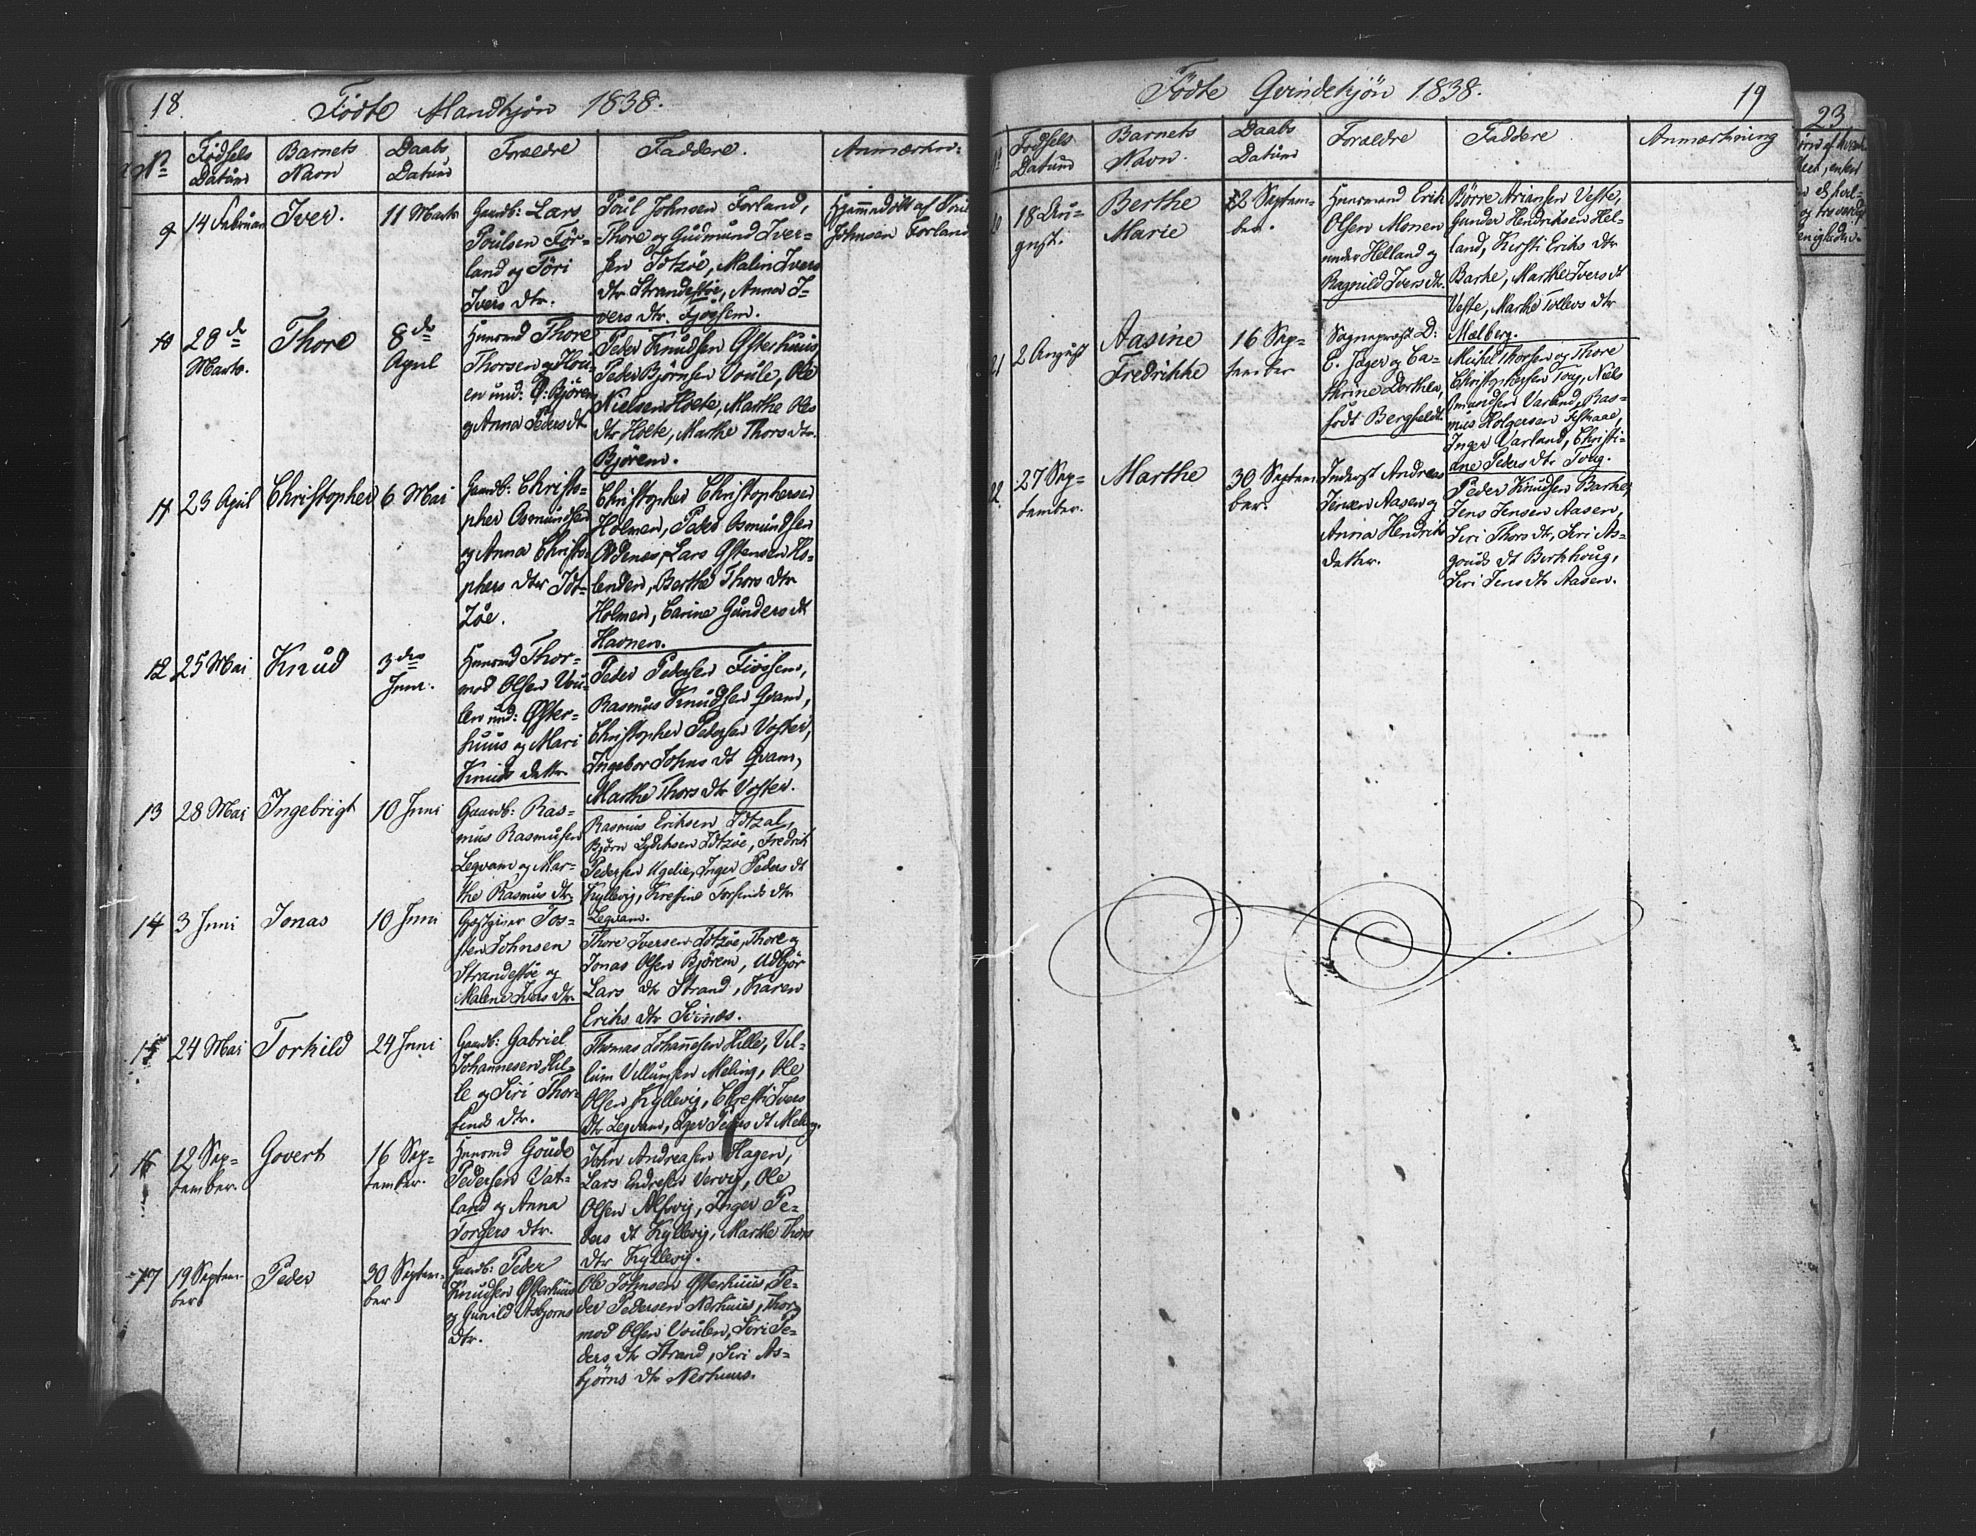 18.
Födte Mandkjøn 1838.
No
Fødsels Datum
Barnets Navn
Daabs Datum
Forældre
Faddere.
Anmærkn:
9
14 Februar
Iver.
11 Marts
Gaardb: Lars
Poulsen For-
land og Töri
Ivers dtr.
Poul Johnsen Forland,
Thore og Gudmund Iver-
sen Totzöe, Malin Ivers
dtr Strandestöe, Anna I-
vers dtr. Fjogsem.
Hjemmedöbt af
Johnsen Forland
10
28de
Marts.
Thore
8de
April
Huusmd Thore
Thorsen
og Anna Peders dt
Peder Knudsen Østerhuus,
Peder Björnsen Voule, Ole
Nielsen Hoete, Marthe Ols
dtr Hoete, Marthe Thors dtr.
Björem.
11
23 April
Christopher
6 Mai
Gaardb: Christo-
pher Osmundsen
og Anna Christo-
phers dtr Tot-
zöe.
Christopher Christophersen
Holmen, Peder Osmundsen
Odenæs, Lars Østensen Hs-
lenden, Berthe Thors dtr
Holmen, Carine Gunders dt
Havnen.
12
25 Mai
Knud
3die
Juni.
Huusmd Thor-
mod Olsen Vou-
len und: Øster-
huus og Mari
Knuds datter.
Peder Pedersen Fiogsem,
Rasmus Knudsen Qvam,
Christopher Pedersen Vogter,
Ingebor Johns dt Qvam,
Marthe Thors dtr Vogter.
13
28 Mai
Ingebrigt
10 Juni
Gaardb: Ras-
mus Rasmusen
Leqvam og Mar-
the Rasmus dtr.
Rasmus Eriksen Totzal,
Björn Lydiksen Totzöe, Fredrik
Pedersen Ugelie, Inger Peders dt
Kyllevig, Kresine Torfinds dtr
Leqvam.
14
3 Juni
Jonas
10 Juni
Gjestgiver Tos-
ten Johnsen
Strandestöe og
Malene Ivers dtr.
Thore Iversen Totzöe, Thore og
Jonas Olsen Björem, Udbjör
Lars dtr Strand, Karen
Eriks dtr Sirnæs.
15
24 Mai
Torkild
24 Juni
Gaardb: Gabriel
Johannesen Hil-
le og Siri Thor-
finds dtr.
Thomas Johannesen Hille, Vil-
lum Villumsen Meling, Ole
Olsen Kyllevig, Chresti Ivers
dtr Leqvam, Inger Peders dt Meling.
16
12 Sep-
tember.
Govert
16 Sep-
tember.
Huusmd Goude
Pedersen Vat-
land og Anna
Torgers dtr.
John Andreasen Hagen,
Lars Endresen Vervig, Ole
Olsen Alsvig, Inger Pe-
ders dt Kyllevig, Marthe Thors
dtr Kyllevig.
17
19 Septem-
ber
Peder
30 Septem-
ber
Gaardb: Peder
Knudsen Østerhuus
og Gunild Asbjorns
dtr.
Ole Johnsen Østerhuus, Pe-
der Pedersen Nerhuus, Thor-
mod Olsen Voulen, Siri Pe-
ders dtr Strand, Siri As-
björns dtr Nerhuus.
Födte Qvindekjön 1838.
19
Fødsels Datum
Barnets Navn.
Daabs Datum
Forældre
Faddere
Anmærkning
20
18 Au-
gust.
Berthe
Marie
2 Septem-
ber.
Huusmand Erik
Olsen Monen
under Helland og
Ragnild Ivers dtr.
Börre Ariansen Veste,
Gunder Hendriksen Hel-
land, Kirsti Eriks dtr
Barke, Marthe Ivers dt
Veste, Marthe Tollevs dtr
Mælberg.
21
2 August
Aasine
Fredrikke
16 Sep-
tember
Sogneprest D:
C. Jæger og Ca-
thrine Dorthea,
födt Bergfeldt.
Michel Thorsen og Thore
Christophersen Toug, Niels
Omundsen Varland, Ras-
mus Holgersen
Inger Varland, Christi-
ane Peders dtr Toug.
22
27 Sep-
tember.
Marthe
30 Septem-
ber.
Inderst Andreas
Jensen Aasen og
Anna Hendriks
datter.
Peder Knudsen Barke,
Jens Jensen Aasen,
Siri Thors dtr, Siri As-
gouds dt Birkhoug,
Siri Jens dtr Aasen.
23